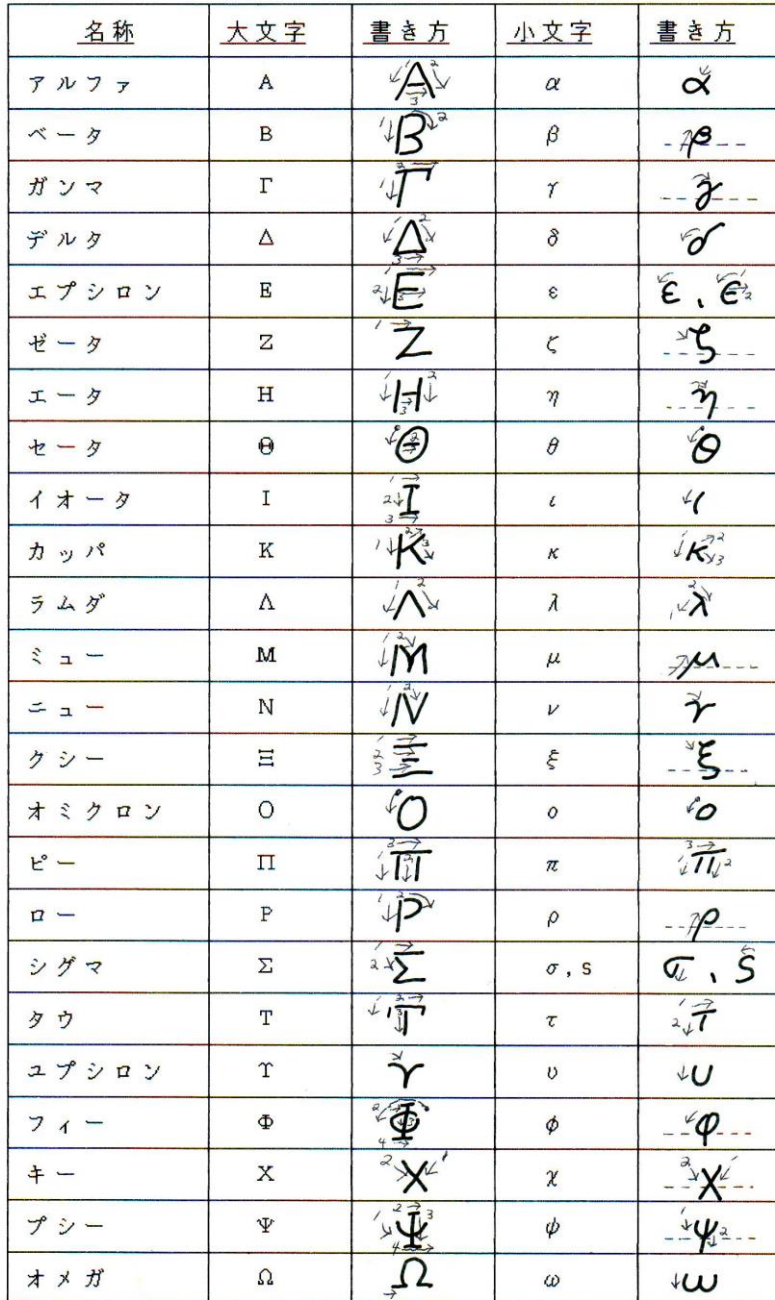 名称 大文字 書き方 小文字 書き方
アルファ A A α α
ベータ B B β β
ガンマ Γ Γ γ γ
デルタ Δ Δ δ δ
エプシロン E E ε ε、ϵ
ゼータ Z Z ζ ζ
エータ H H η η
セータ Θ Θ θ θ
イオータ I I ι ι
カッパ K K κ κ
ラムダ Λ Λ λ λ
ミュー M M μ μ
ニュー N N ν ν
クシー Ξ Ξ ξ ξ
オミクロン O O ο ο
ピー Π Π π π
ロー P P ρ ρ
シグマ Σ Σ σ,s σ、S
タウ T T τ τ
ユプシロン ϒ ϒ υ υ
フィー Φ Φ φ φ
キー X X χ χ
プシー Ψ Ψ ψ ψ
オメガ Ω Ω ω ω